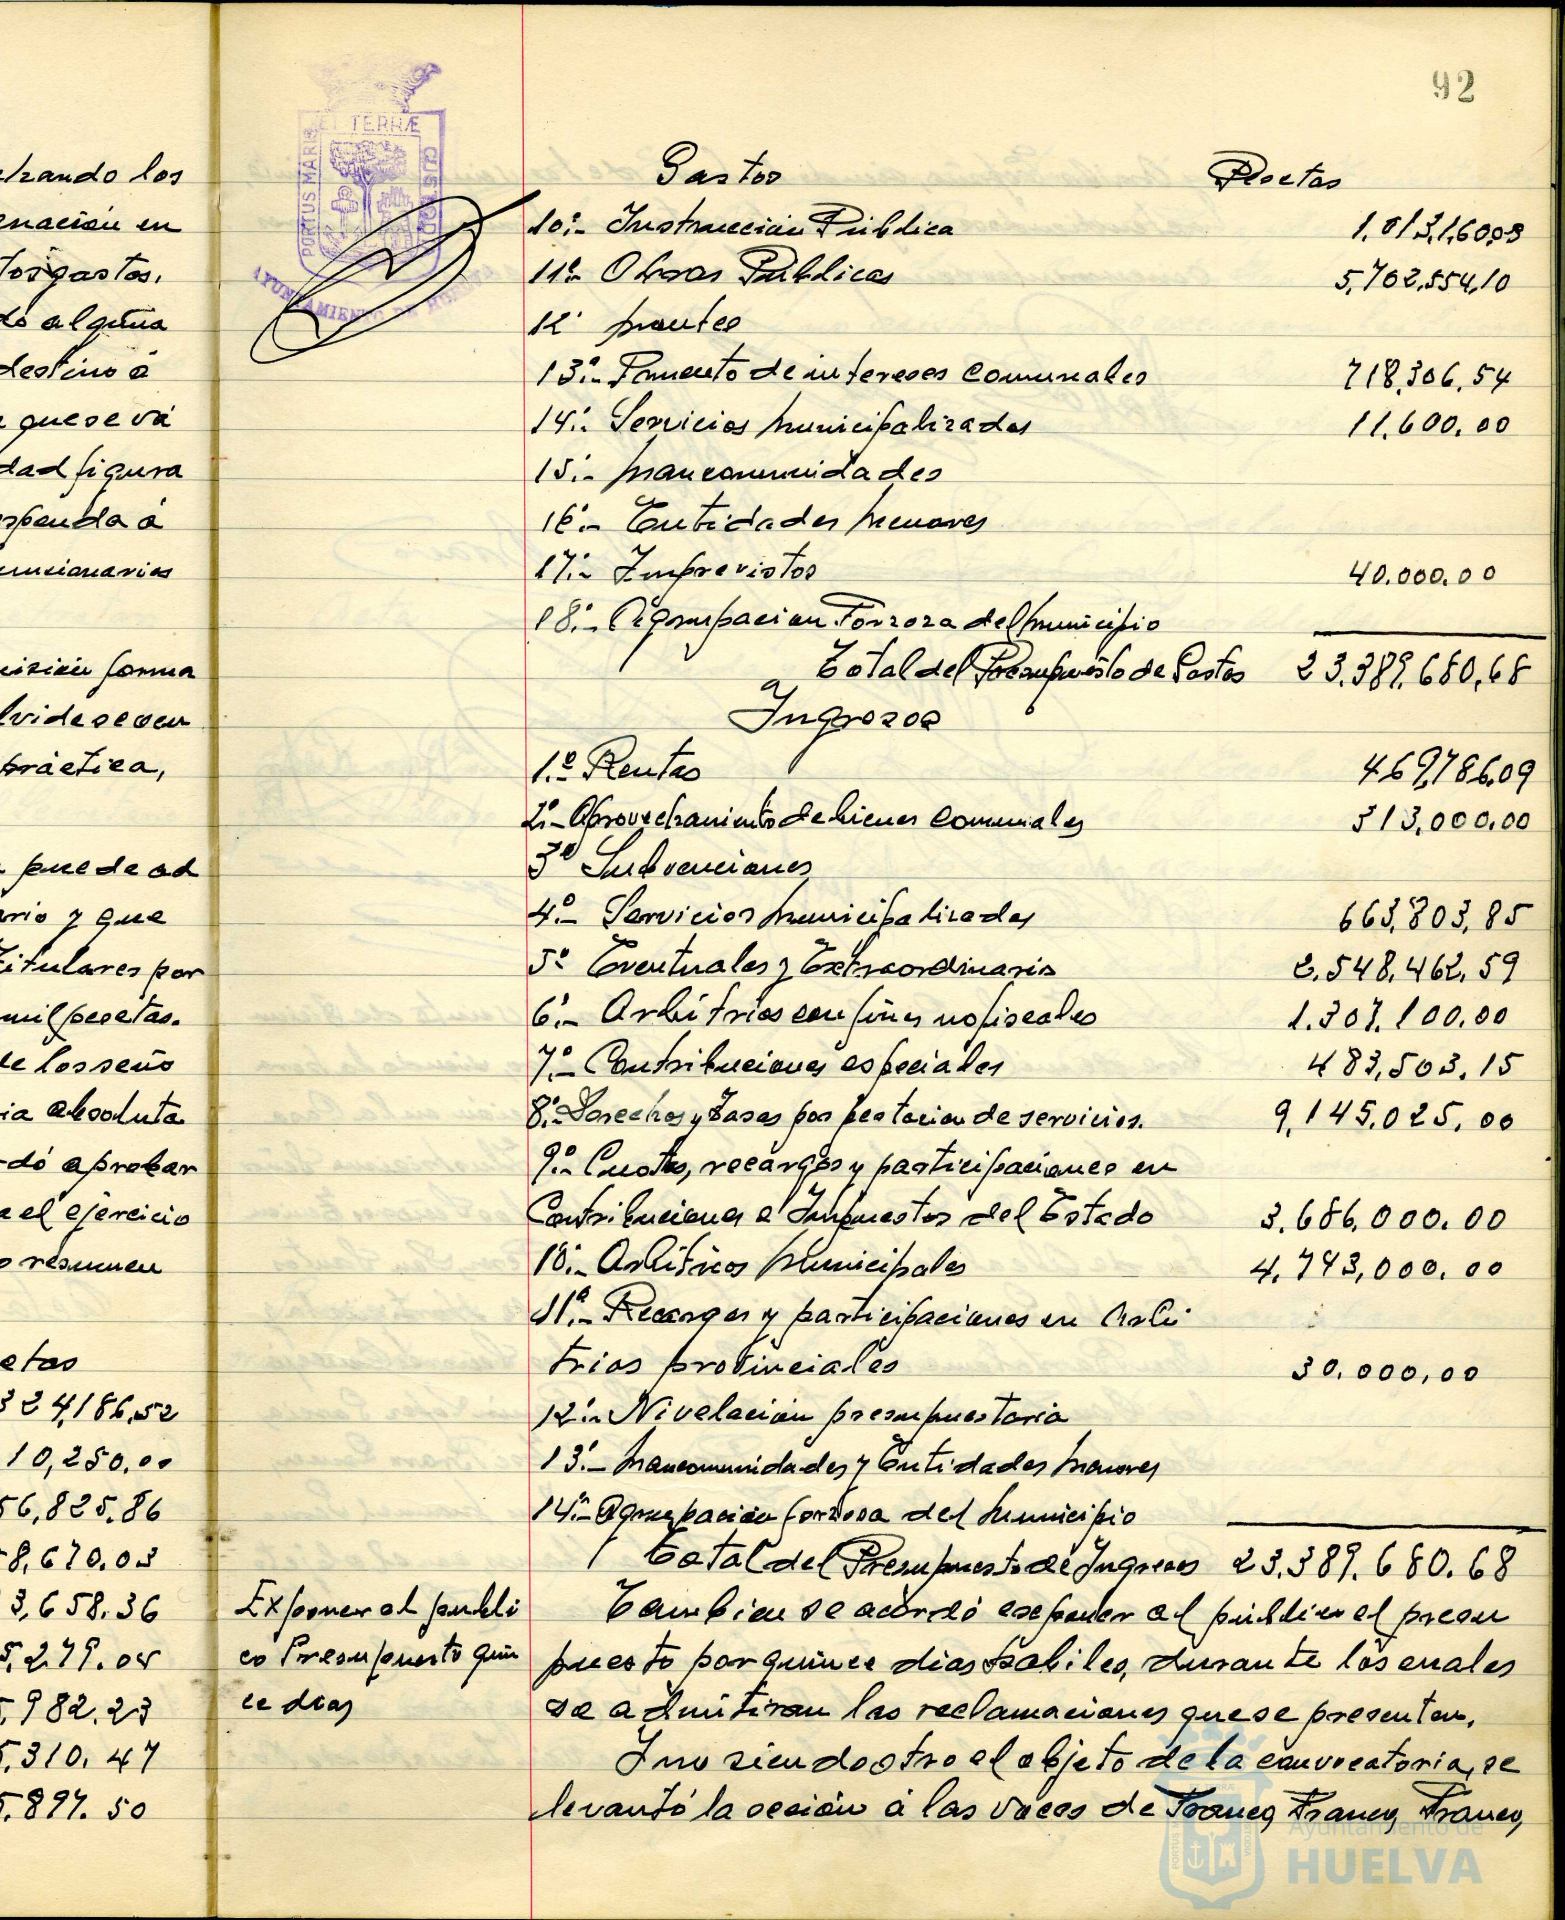 92
ET TERRÆ
PORTUS MARIS
CUSTODIA
AYUNTAMIENTO DE HUELVA
los
nación en
gastos.
alguna
destino á
que se vá
dad figura
á
forma
práctica,
puede ad
rio y que
Titulares por
mil pesetas.
de los seño
ia absoluta
dó aprobar
el ejercicio
resumen
etas
324,186,52
10,250.00
56,825.86
8,670.03
3,658.36
5,279.05
982.23
5,310.47
5,897.50
Gastos Pesetas
10º.- Instrucción Pública 1,013,160,03
11º.- Obras Públicas 5,702,554,10
12º montes
13º.- Fomento de intereses comunales 718,306,54
14º.- Servicios municipalizados 11,600.00
15º.- mancomunidades
16º.- Entidades menores
17º.- Imprevistos 40.000.00
18º.- Agrupacion Forzoza del municipio
Total del Presupuesto de Gastos 23,389,680,68
Ingresos
1.º Rentas 469,786.09
2º.- Aprovechamiento de bienes comunales 313,000.00
3º Subvenciones
4º.- Servicios municipalizados 663,803,85
5º Eventuales y Extraordinario 2.548,462,59
6º.- Arbítrios con fines no fiscales 1.307,100.00
7º.- Contribuciones especiales 483,503.15
8º.- Derechos y Tasas por pestacion de servicios. 9,145,025,00
9º.- Cuotas, recargos y participaciones en
Contribuciones e Impuestos del Estado 3,686,000.00
10º.- Arbitrios municipales 4,743,000.00
11º.- Recargos y participaciones en Arbi
trios provinciales 30.000,00
12º.- Nivelación presupuestaria
13º.- mancomunidades y Entidades menores
14º.- Agrupación forzosa del municipio
Total del Presupuesto de Ingresos 23,389.680.68
Exponer al públi
co Presupuesto quin
ce dias
Tambien se acordó exponer al público el presu
puesto por quince dias habiles, durante los cuales
se admitiran las reclamaciones que se presenten.
Y no siendo otro el objeto de la convocatoria, se
levantó la sesión á las voces de Franco, Franco, Franco,
Ayuntamiento de
HUELVA